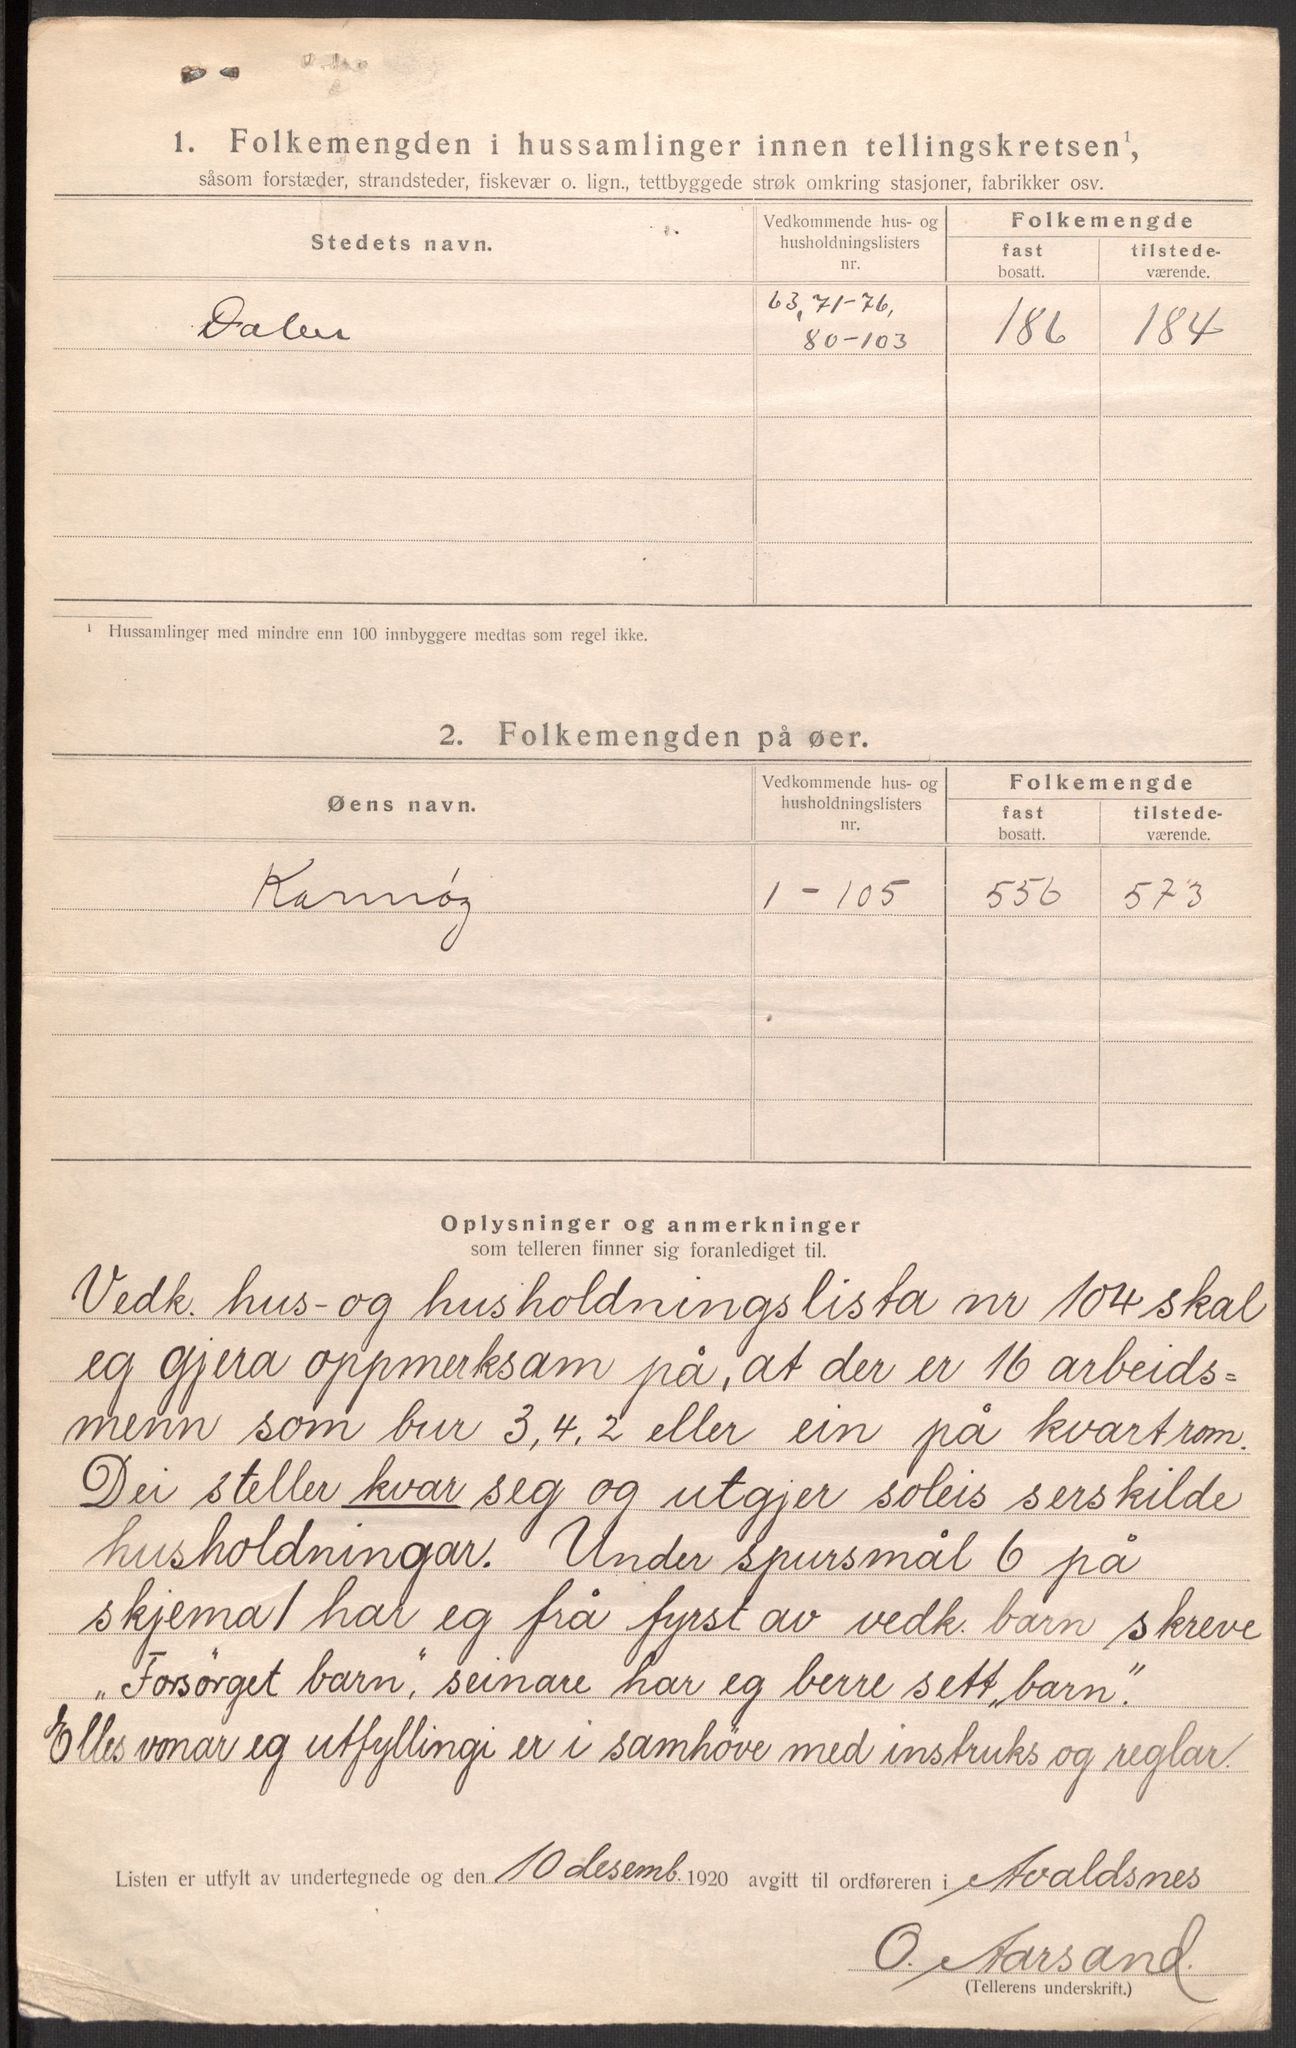 1. Folkemengden i hussamlinger innen tellingskretsen¹,
såsom forstæder, strandsteder, fiskevær o. lign., tettbyggede strøk omkring stasjoner, fabrikker osv.
Stedets navn.
Vedkommende hus- og
husholdningslisters
nr.
Folkemengde
fast
bosatt.
tilstede-
værende.
63, 71-76,
Dalen 80-103 186 184
¹ Hussamlinger med mindre enn 100 innbyggere medtas som regel ikke.
2. Folkemengden på øer.
Øens navn.
Vedkommende hus- og
husholdningslisters
nr.
Folkemengde
fast
bosatt.
tilstede-
værende.
Karmøy 1 - 105 556 573
Oplysninger og anmerkninger
som telleren finner sig foranlediget til.
Vedk. hus- og husholdningslista nr 104 skal
eg gjera oppmerksam på, at der er 16 arbeids=
menn som bur 3, 4, 2 eller ein på kvart rom.
Dei steller kvar seg og utgjer soleis serskilde
husholdningar. Under spursmål 6 på
skjema 1 har eg frå fyrst av vedk. barn skreve
„Forsörget barn“, seinare har eg berre sett „barn“.
Elles vonar eg utfyllingi er i samhöve med instruks og reglar.
Listen er utfylt av undertegnede og den 10 desemb. 1920 avgitt til ordføreren i Avaldsnes
O. Aarsand.
(Tellerens underskrift.)